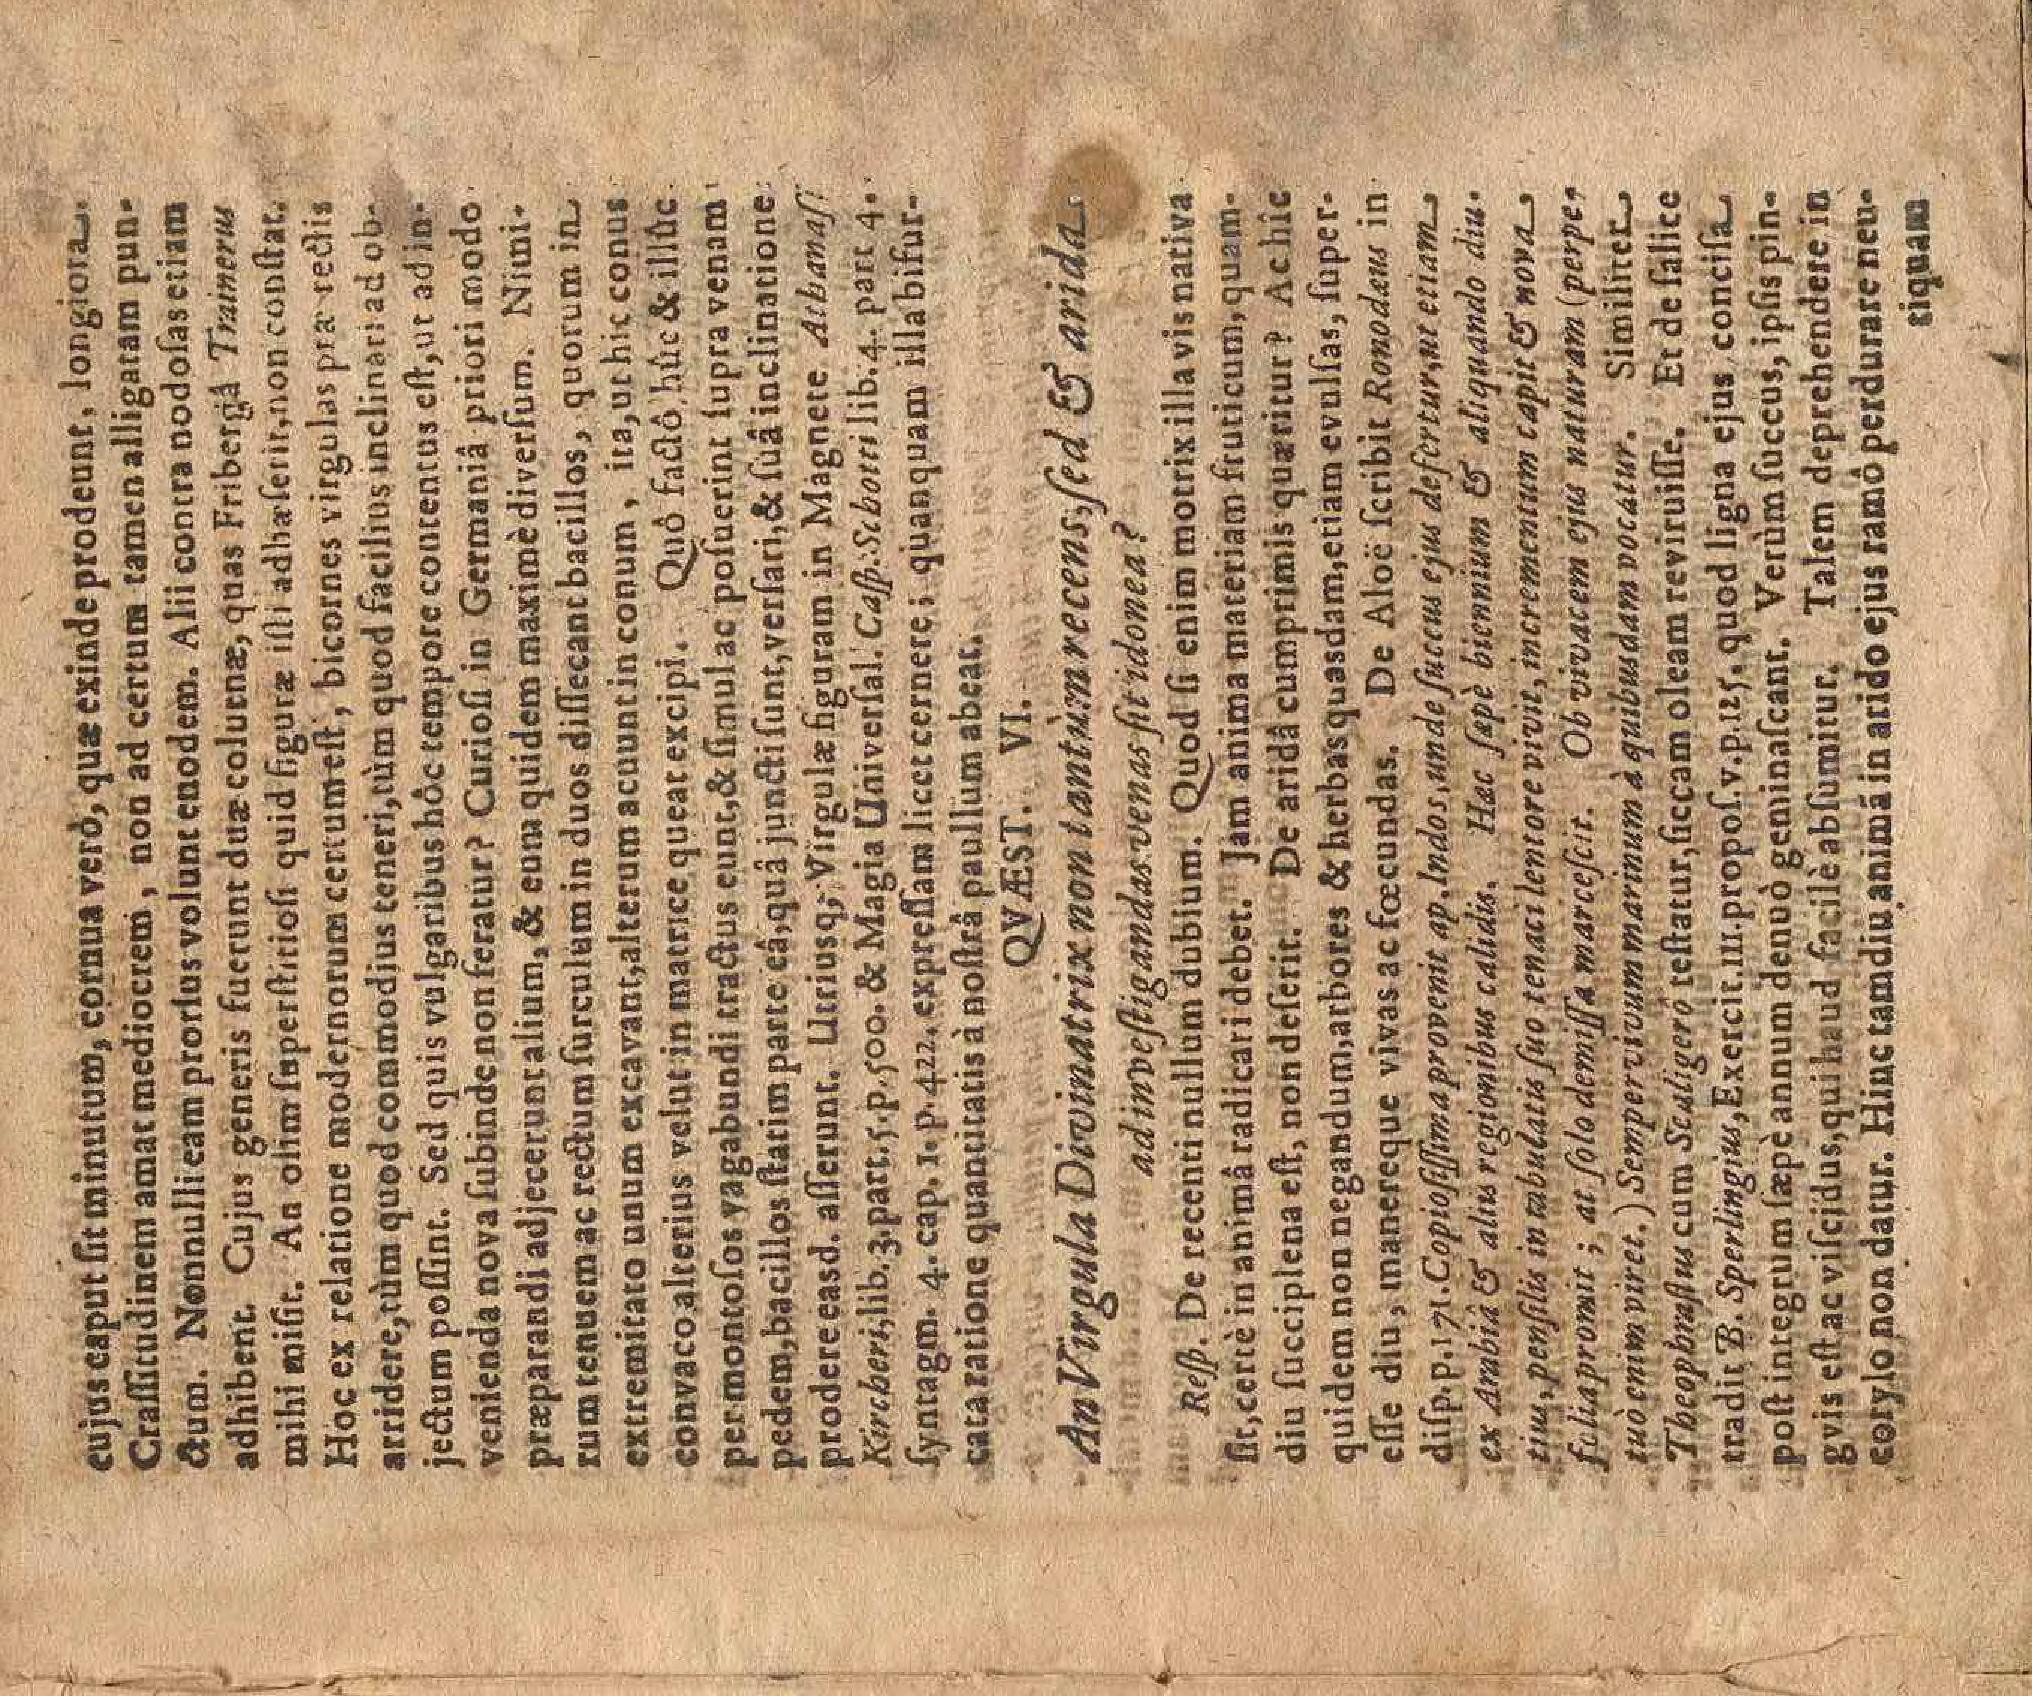 cujus caput ſit minutum, cornua verò, quæ exinde prodeunt, longiora.
Craſſitudinem amat mediocrem, non ad certum tamen alligatam pun-
ctum. Nonnulli eam prorſus volunt enodem. Alii contra nodoſas etiam
adhibent. Cujus generis fuerunt duæ colurnæ, quas Fribergâ Trainerus
mihi miſit. An olim ſuperſtitioſi quid figuræ iſti adhæſerit, non conſtat.
Hoc ex relatione modernorum certum eſt, bicornes virgulas præ rectis
arridere, tùm quod commodius teneri, tùm quod facilius inclinari ad ob-
jectum poſſint. Sed quis vulgaribus hôc tempore contentus eſt, ut ad in-
venienda nova ſubinde non feratur? Curioſi in Germaniâ priori modo
præparandi adjecerunt alium, & eum quidem maximè diverſum. Nimi-
rum tenuem ac rectum ſurculum in duos diſſecant bacillos, quorum in
extremitate unum excavant, alterum acuunt in conum, ita, ut hic conus
convaco alterius velut in matrice queat excipi. Quô factô, hûc & illûc
per montoſos vagabundi tractus eunt, & ſimulac poſuerint ſupra venam
pedem, bacillos ſtatim parte eâ, quâ juncti ſunt, verſari, & ſuâ inclinatione
prodere easd. aſſerunt. Utriusq; Virgulæ figuram in Magnete Athanaſi
Kircheri, lib. 3. part. 5. p. 500. & Magia Univerſal. Caſp. Schotti lib. 4. part 4.
ſyntagm. 4. cap. 1. p. 422. expreſſam licet cernere; quanquam illa bifur-
cata ratione quantitatis à noſtrâ paullum abeat.
QVÆST. VI.
An Virgula Divinatrix non tantùm recens, ſed & arida
ad inveſtigandas venas ſit idonea?
Reſp. De recenti nullum dubium. Quod ſi enim motrix illa vis nativa
ſit, certè in animâ radicari debet. Jam anima materiam fruticum, quam-
diu ſucciplena eſt, non deſerit. De aridâ cumprimis quæritur? Ac hîc
quidem non negandum, arbores & herbas quasdam, etiam evulſas, ſuper-
eſſe diu, manereque vivas ac fœcundas. De Aloë ſcribit Ronodæus in
diſp. p. 171. Copioſiſſima provenit ap. Indos, unde ſuccus ejus defertur, ut etiam
ex Ambiâ & aliis regionibus calidis. Hæc ſæpè biennium & aliquando diu-
tius, penſilis in tabulatis ſuo tenaci lentore vivit, incrementum capit & nova
folia promit; at ſolo demiſſa marceſcit. Ob vivacem ejus naturam (perpe,
tuò enim viret.) Sempervivum marinum à quibusdam vocatur. Similiter
Theophraſtus cum Scaligero teſtatur, ſiccam oleam reviruiſſe. Et de ſalice
tradit B. Sperlingius, Exercit. III. propoſ. v. p. 125. quod ligna ejus conciſa
poſt integrum ſæpè annum denuò geminaſcant. Verùm ſuccus, ipſis pin-
gvis eſt ac viſcidus, qui haud facilè abſumitur. Talem deprehendere in
corylo non datur. Hinc tamdiu animâ in arido ejus ramô perdurare neu-
tiquam